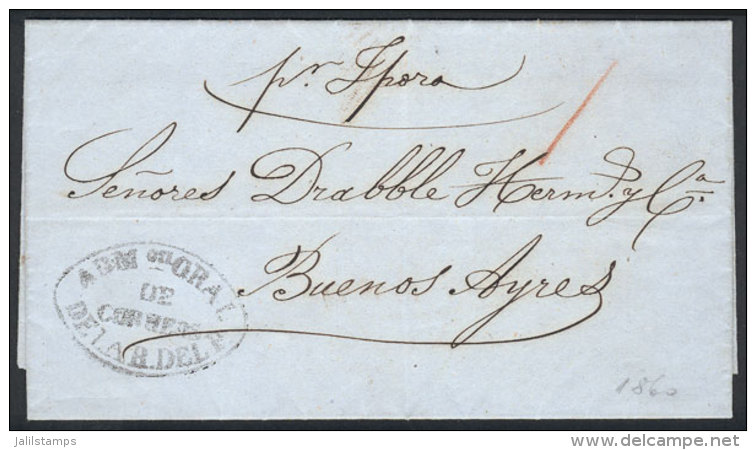 pr. Ypora
Señores Drabble Hermos. y Ca.
Buenos Ayres
ADMon GRAL
DE
CORREOS
DE LA R. DEL P.
1860
jalilstamps
delcampe.net